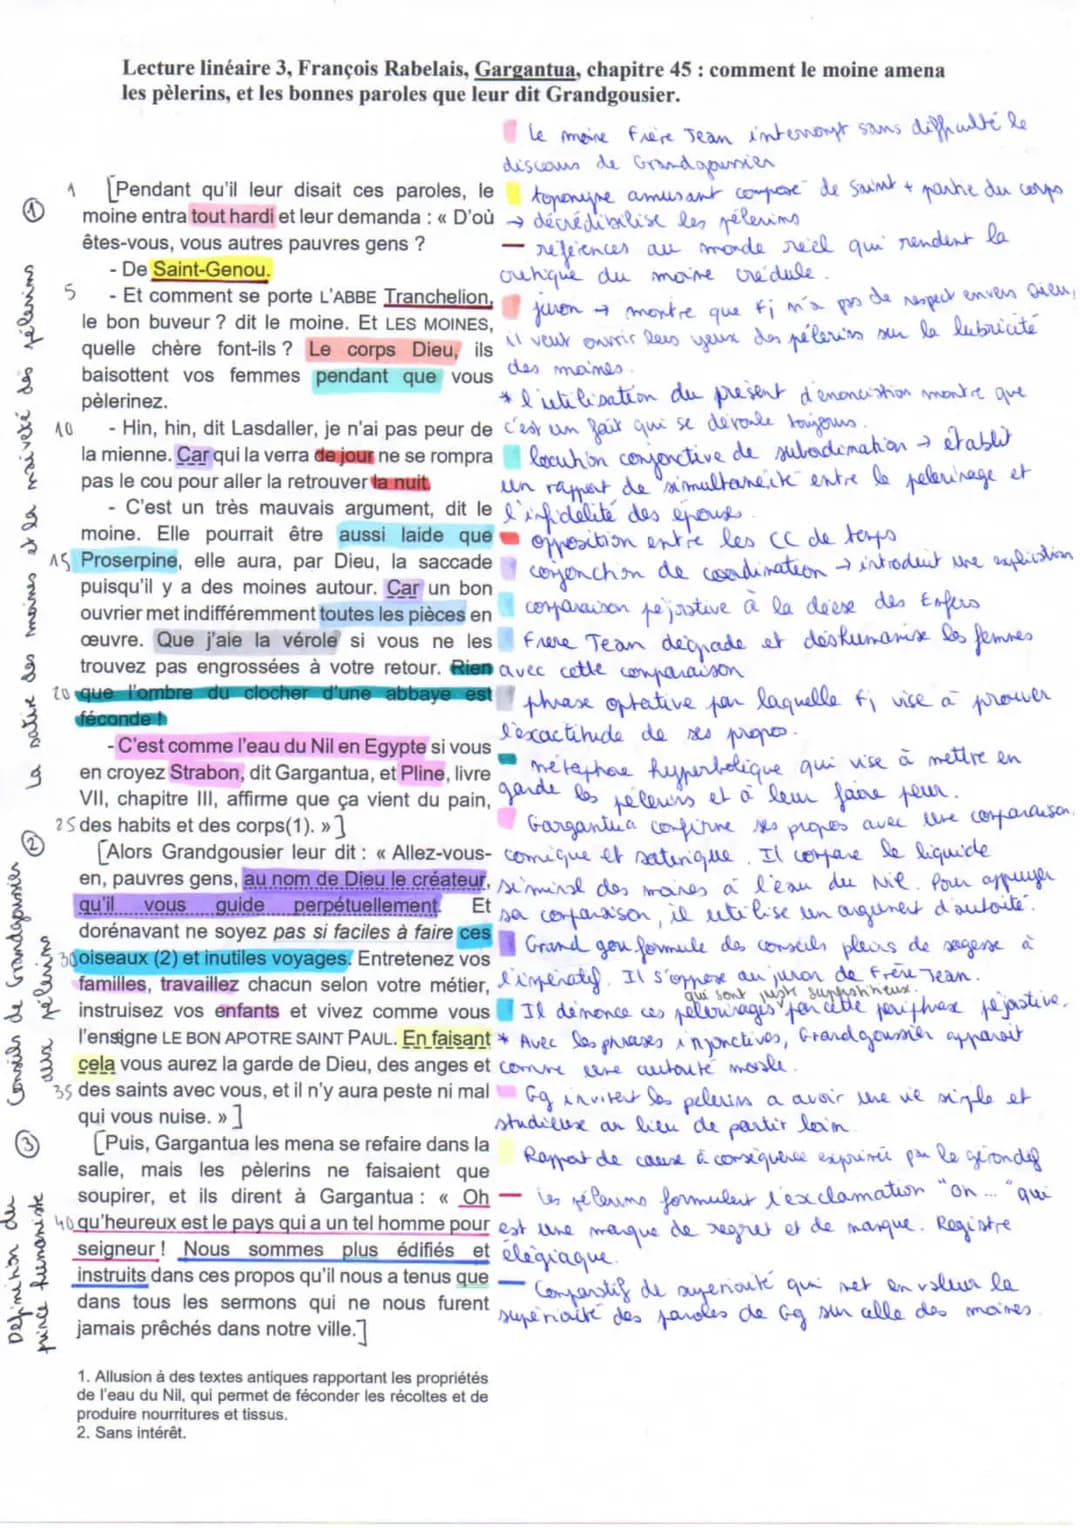 Lecture linéaire 3, François Rabelais, Gargantua, chapitre 45 : comment le moine amena
les pèlerins, et les bonnes paroles que leur dit Grandgousier.
①
La satire des moines et la naïveté des pèlerins
1 [Pendant qu'il leur disait ces paroles, le
moine entra tout hardi et leur demanda : « D'où
êtes-vous, vous autres pauvres gens ?
- De Saint-Genou.
5 - Et comment se porte L'ABBE Tranchelion,
le bon buveur ? dit le moine. Et LES MOINES,
quelle chère font-ils ? Le corps Dieu, ils
baisottent vos femmes pendant que vous
pèlerinez.
10 - Hin, hin, dit Lasdaller, je n'ai pas peur de
la mienne. Car qui la verra de jour ne se rompra
pas le cou pour aller la retrouver la nuit.
- C'est un très mauvais argument, dit le
moine. Elle pourrait être aussi laide que
15 Proserpine, elle aura, par Dieu, la saccade
puisqu'il y a des moines autour. Car un bon
ouvrier met indifféremment toutes les pièces en
œuvre. Que j'aie la vérole si vous ne les
trouvez pas engrossées à votre retour. Rien
20 que l'ombre du clocher d'une abbaye est
féconde !
- C'est comme l'eau du Nil en Egypte si vous
en croyez Strabon, dit Gargantua, et Pline, livre
VII, chapitre III, affirme que ça vient du pain,
25 des habits et des corps(1). »]
②
Conseils de Grandgousier
aux pèlerins
[Alors Grandgousier leur dit : « Allez-vous-
en, pauvres gens, au nom de Dieu le créateur,
qu'il vous guide perpétuellement. Et
dorénavant ne soyez pas si faciles à faire ces
30 oiseaux (2) et inutiles voyages. Entretenez vos
familles, travaillez chacun selon votre métier,
instruisez vos enfants et vivez comme vous
l'enseigne LE BON APOTRE SAINT PAUL. En faisant
cela vous aurez la garde de Dieu, des anges et
35 des saints avec vous, et il n'y aura peste ni mal
qui vous nuise. »]
③
Définition du
prince humaniste
[Puis, Gargantua les mena se refaire dans la
salle, mais les pèlerins ne faisaient que
soupirer, et ils dirent à Gargantua : « Oh
40 qu'heureux est le pays qui a un tel homme pour
seigneur ! Nous sommes plus édifiés et
instruits dans ces propos qu'il nous a tenus que
dans tous les sermons qui ne nous furent
jamais prêchés dans notre ville.]
1. Allusion à des textes antiques rapportant les propriétés
de l'eau du Nil, qui permet de féconder les récoltes et de
produire nourritures et tissus.
2. Sans intérêt.
le moine Frère Jean interrompt sans difficulté le
discours de Grandgousier
toponyme amusant composé de Saint + partie du corps
→ décrédibilise les pélerins
— références au monde réel qui rendent la
critique du moine crédule.
juron → montre que Fj n'a pas de respect envers Dieu,
il veut ouvrir les yeux des pélerins sur la lubricité
des moines.
* l'utilisation du présent d'énonciation montre que
c'est un fait qui se déroule toujours.
locution conjonctive de subordination → établit
un rapport de simultanéité entre le pelerinage et
l'infidélité des épouses
opposition entre les CC de temps
conjonction de coordination → introduit une explication
comparaison péjorative à la déesse des Enfers
Frère Jean dégrade et déshumanise les femmes
avec cette comparaison
phrase optative par laquelle Fj vise à prouver
l'exactitude de ses propos.
métaphore hyperbolique qui vise à mettre en
garde les pélerins et à leur faire peur.
Gargantua confirme ses propos avec une comparaison
comique et satirique. Il compare le liquide
séminal des moines à l'eau du Nil. Pour appuyer
sa comparaison, il utilise un argument d'autorité.
Grand gou formule des conseils pleins de sagesse à
l'impératif. Il s'oppose au juron de Frère Jean.
qui sont juste superstitieux.
Il dénonce ces pélerinages par cette périphrase péjorative.
* Avec les phrases injonctives, Grandgousier apparait
comme une autorité morale.
Gg invitent les pelerins a avoir une vie simple et
studieuse au lieu de partir loin.
Rapport de cause à conséquence exprimé par le gérondif
— les pélerins formulent l'exclamation "oh ..." qui
est une marque de regret et de manque. Registre
élégiaque.
— Comparatif de supériorité qui met en valeur la
supériorité des paroles de Gg sur celle des moines.